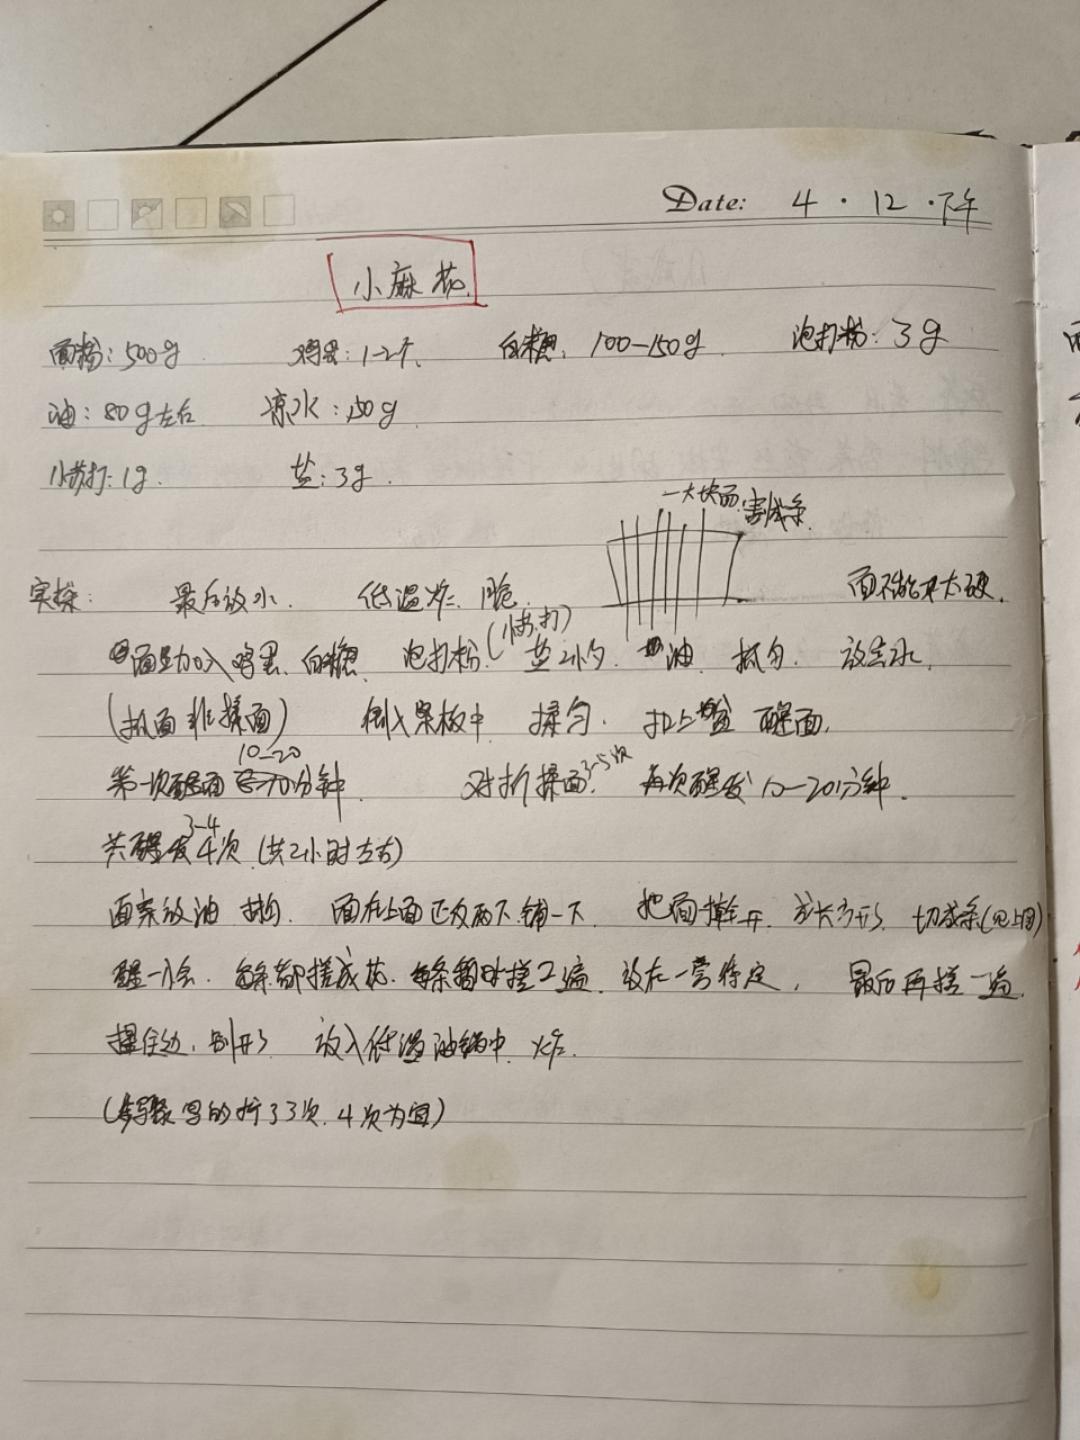 Date: 4·12·下午
小麻花
面粉:500g 鸡蛋:1-2个、 白糖、100-150g 泡打粉:3g
油:80g左右 凉水:150g
小苏打:1g 盐:3g
一大块面 割成条
实操: 最后放水、 低温炸、脆 面不能太硬
面里加入鸡蛋、白糖 泡打粉(小苏打) 盐2小勺、油 抓匀、放凉水、
(抓面非揉面) 倒入案板中 揉匀、扣上盆 醒面、
第一次醒面10-20分钟 对折揉面3-5次、再次醒发10-20分钟、
共醒发3-4次(共2小时左右)
面案放油 抹匀、面在上面正反两下铺一下 把面擀开 方长方形 切成条(见上图)
醒一小会、每条都搓成花、每条都对搓2遍、放在一旁待定, 最后再搓一遍
捏住边、别开 放入低温油锅中 炸、
(步骤写的拧了3次、4次为宜)